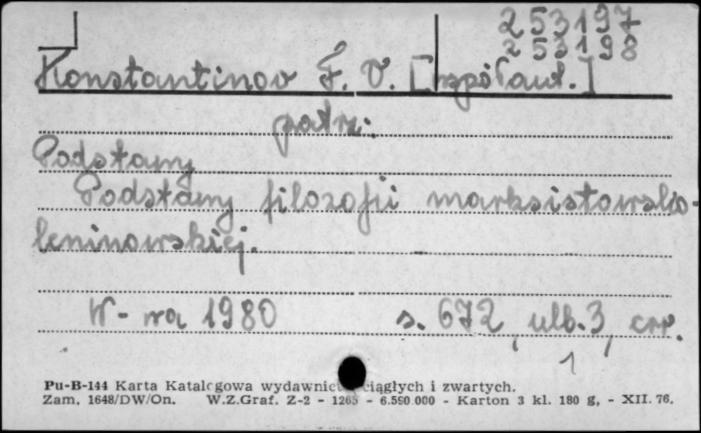 253197
253198
Konstantinov F. V. [współaut.]
patrz:
Podstawy
Podstawy filozofii marksistowsko-
leninowskiej.
W-wa 1980 s. 672, ulb. 3,
1
Pu-B-144 Karta Katalogowa wydawnict ciągłych i zwartych.
Zam. 1648/DW/On. W.Z.Graf. Z-2 - 1265 - 6.590.000 - Karton 3 kl. 180 g, - XII. 76.